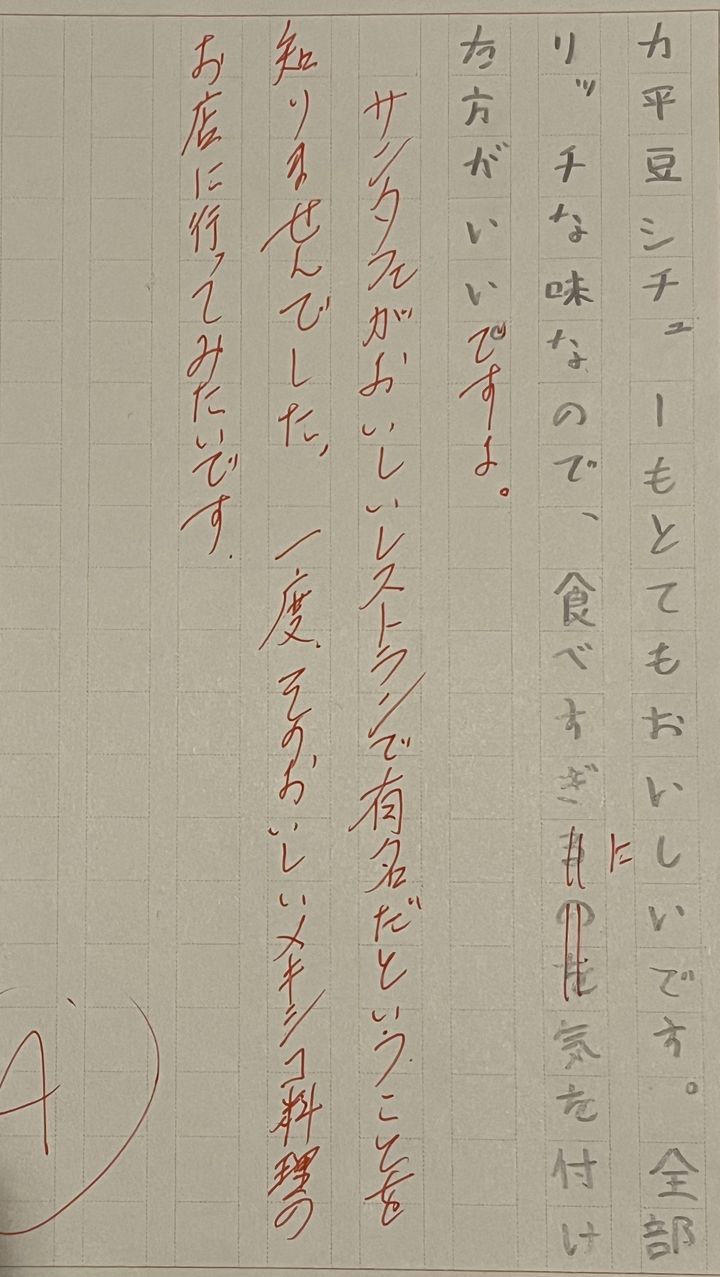 カ平豆シチューもとてもおいしいです。全部
リッチな味なので、食べすぎ
に
気を付け
た方がいいですよ。
サンタフェがおいしいレストランで有名だということを
知りませんでした。一度、そのおいしいメキシコ料理の
お店に行ってみたいです。
A